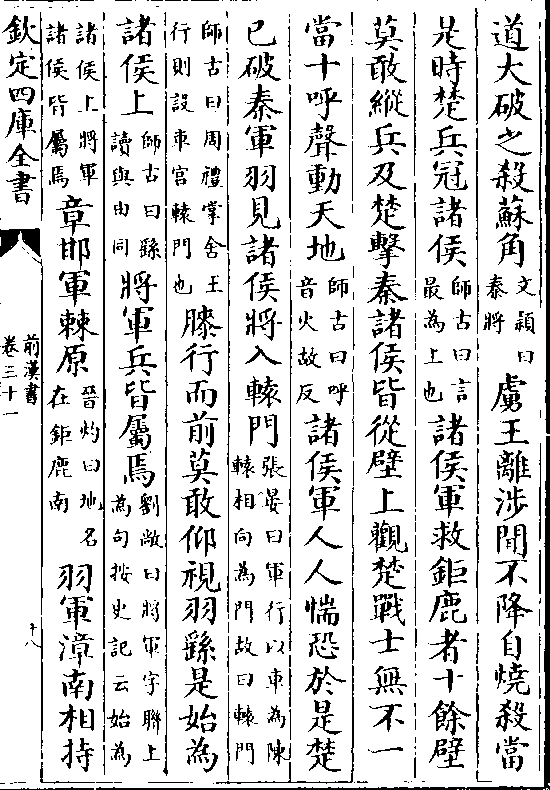 道大破之殺蘇角文穎曰秦將虜王離涉閒不降自燒殺當
是時楚兵冠諸侯師古曰言最為上也諸侯軍救鉅鹿者十餘壁
莫敢縱兵及楚擊秦諸侯皆從壁上觀楚戰士無不一
當十呼聲動天地師古曰呼音火故反諸侯軍人人惴恐於是楚
已破秦軍羽見諸侯將入轅門張晏曰軍行以車為陳轅相向為門故曰轅門
師古曰周禮掌舍王行則設車宮轅門也膝行而前莫敢仰視羽繇是始為
諸侯上師古曰繇讀與由同將軍兵皆屬焉劉敞曰將軍字聯上為句按史記云始為
諸侯上將軍諸侯皆屬焉章邯軍棘原晉灼曰地名在鉅鹿南羽軍漳南相持
欽定四庫全書
前漢書
卷三十一
十八